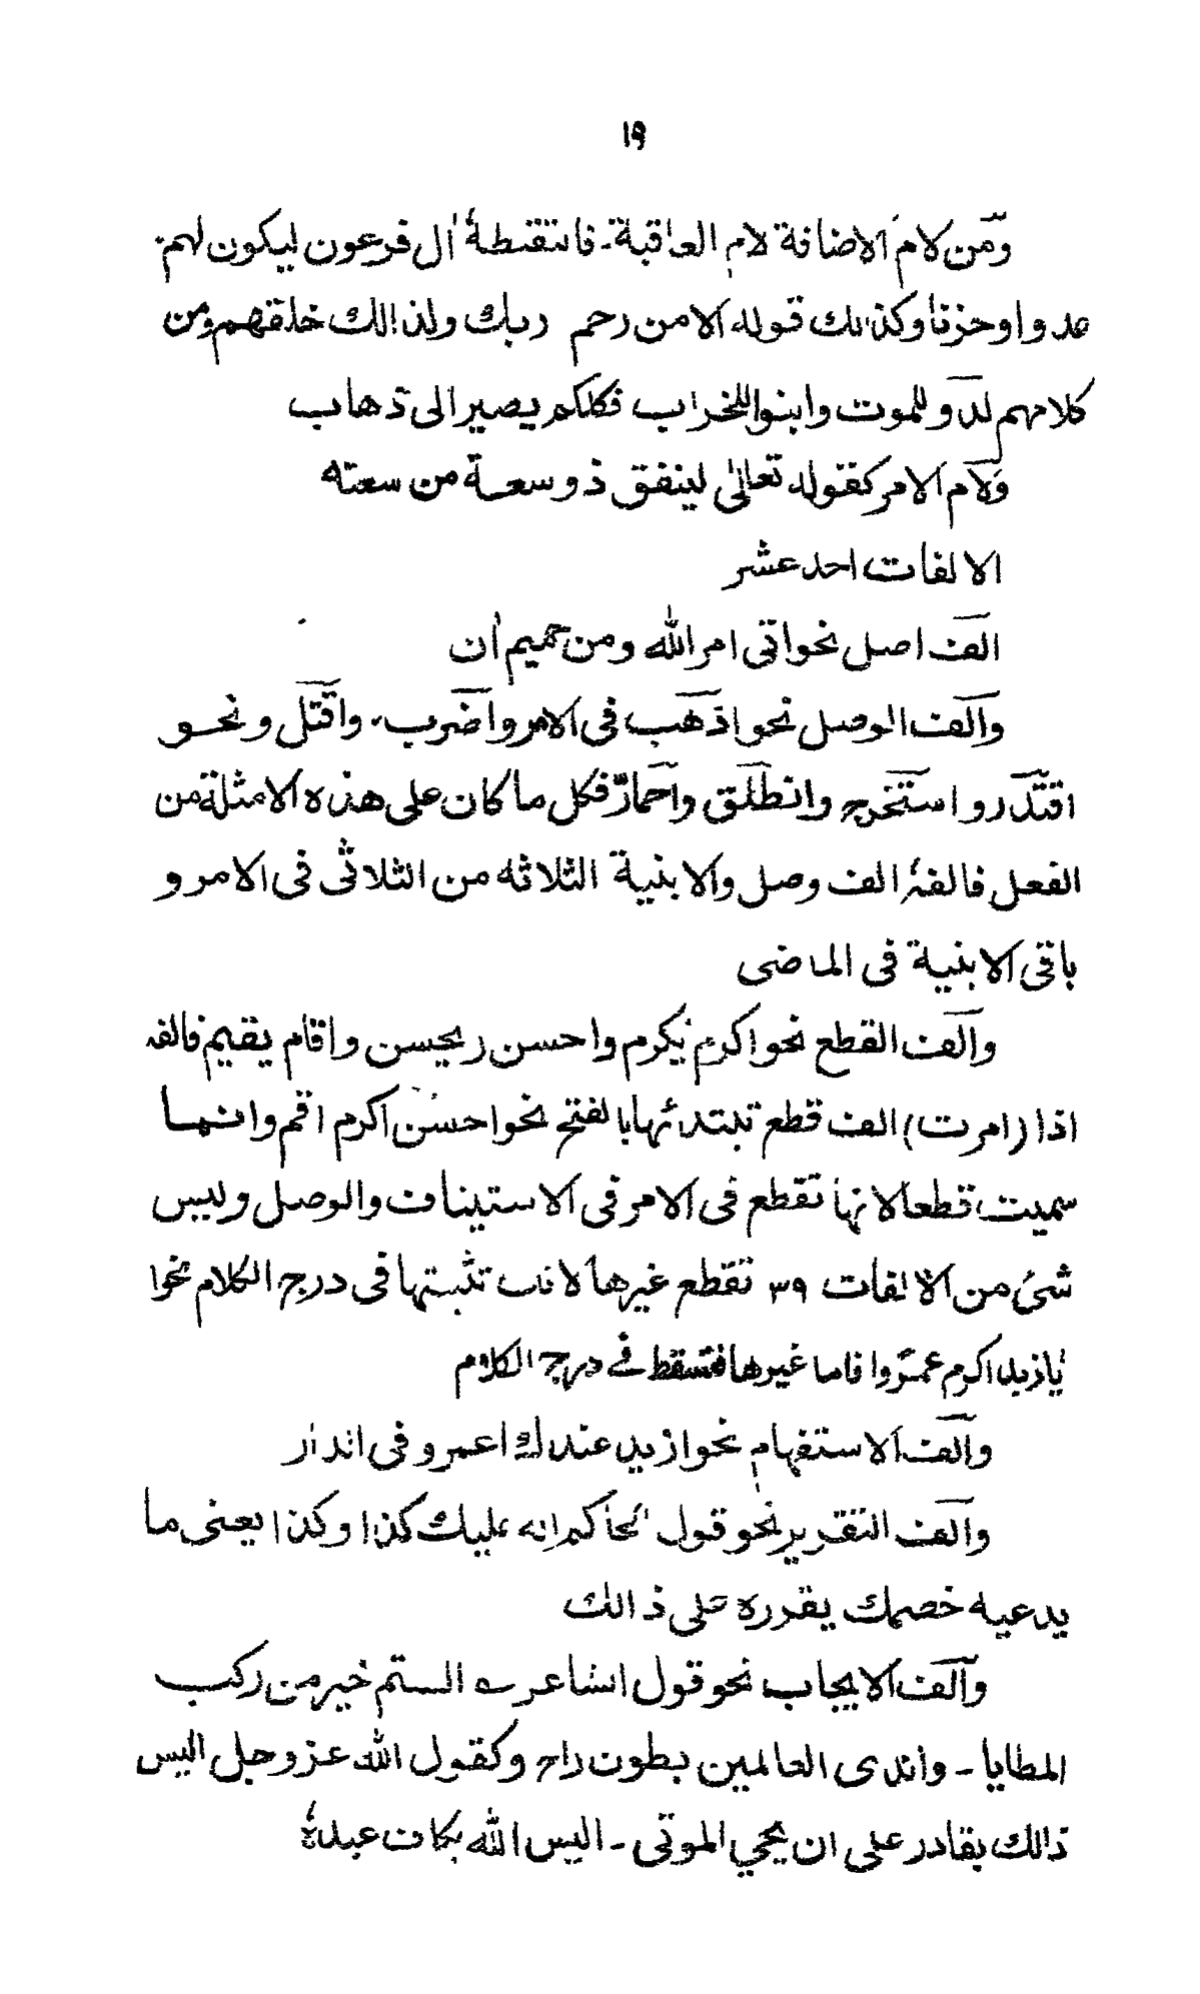 ١٩
ومن لام الاضافة لام العاقبة ـ فالتقطهٗ اٰل فرعون ليكون لهم
عدوا وحزنا وكذالك قوله الامن رحم ربك ولذالك خلقهم ومن
كلامهم لدو للموت وابنوا للخراب فكلكم يصير الى ذهاب
ولام الامر كقوله تعالىٰ لينفق ذو سعة من سعته
الالفات احد عشر
الف اصل نحو اتى امر الله ومن حميم اٰن
والف الوصل نحو اذهب فى الامر واضرب، واقتل ونحو
اقتدر واستخرج وانطلق واحمارّ فكل ما كان على هذه الامثلة من
الفعل فالفهٗ الف وصل والابنية الثلاثه من الثلاثى فى الامر و
باقى الابنية فى الماضى
والف القطع نحو اكرم يكرم واحسن ريحسن واقام يقيم فالفه
اذا (امرت) الف قطع تبتدئها بالفتح نحو احسن اكرم اقم وانما
سميت قطعا لانها تقطع فى الامر فى الاستيناف والوصل وليس
شئ من الالفات ٣٩ تقطع غيرها لانك تثبتها فى درج الكلام نحوا
يا زيد اكرم عمروا فاما غيرها فتسقط فے درج الكلام
والف الاستفهام نحو ازيد عندك اعمرو فى الدار
والف التقرير نحو قول الحاكم انه عليك كذا وكذا يعنى ما
يدعيه خصمك يقرره على ذالك
والف الايجاب نحو قول الشاعر ے الستم خير من ركب
المطايا ـ واندى العالمين بطون راح وكقول الله عز وجل اليس
ذالك بقادر على ان يحي الموتى ـ اليس الله بكاف عبدهٗ